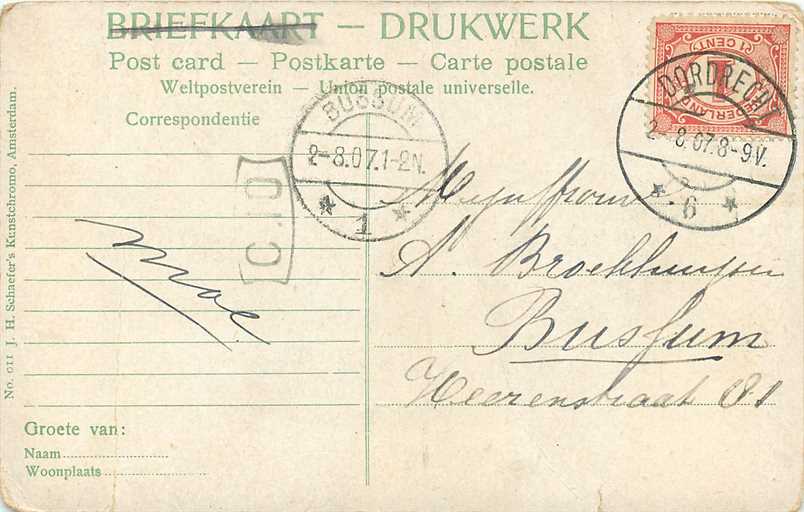 BRIEFKAART — DRUKWERK
Post card — Postkarte — Carte postale
Weltpostverein — Union postale universelle.
Correspondentie
1 CENT
NEDERLAND
DORDRECHT
2-8.07.8-9V.
6
BUSSUM
2-8.07.1-2N.
1
C.10
Mejuffrouw
A. Broekhuijsen
Bussum
Heerenstraat 81
moe
Groete van:
Naam
Woonplaats
No. 011 J. H. Schaefer's Kunstchromo, Amsterdam.